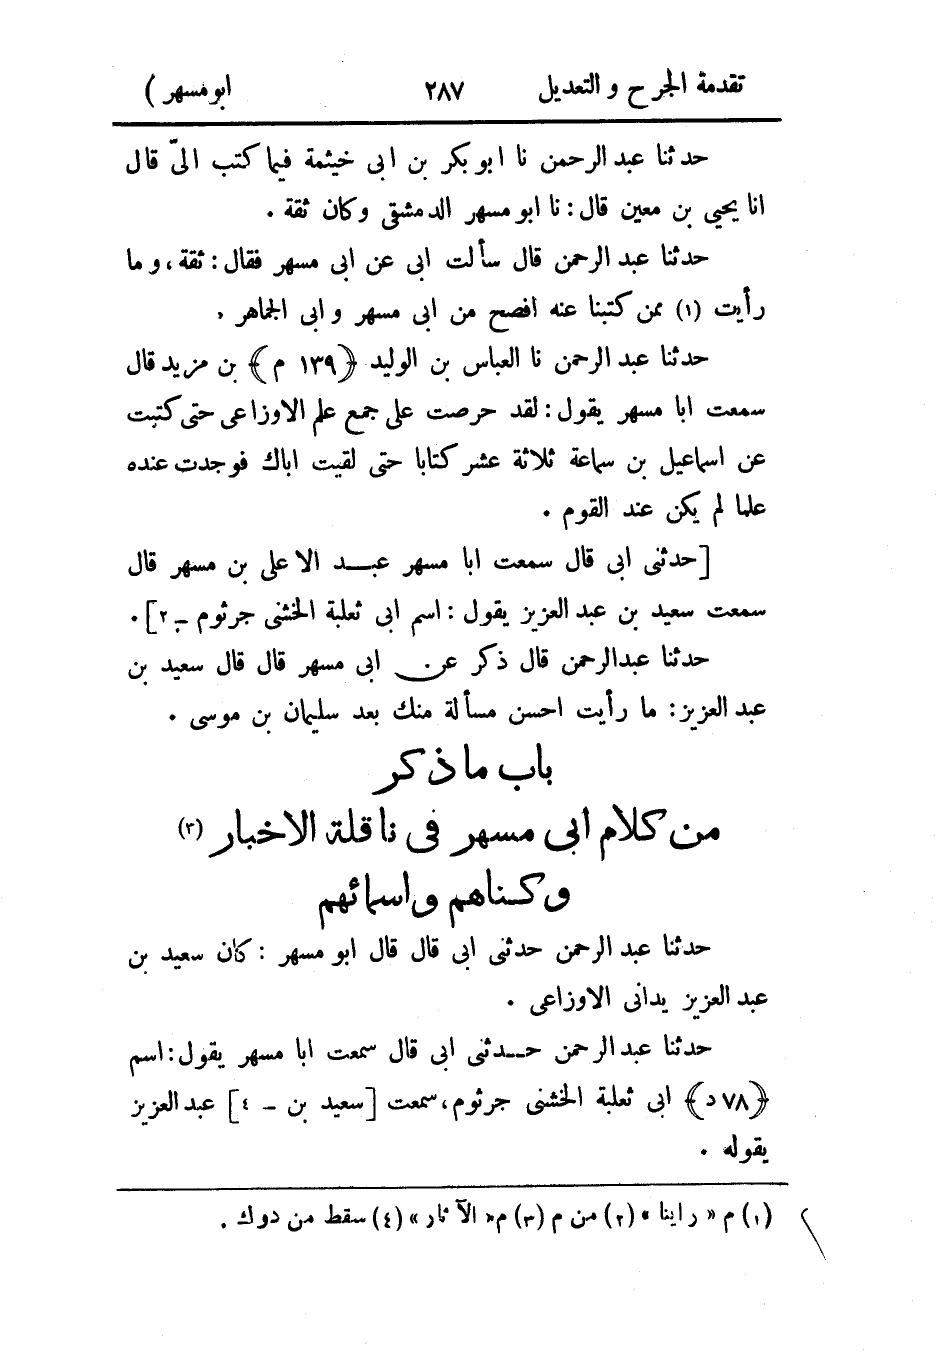 تقدمة الجرح و التعديل ٢٨٧ ابو مسهر )
حدثنا عبد الرحمن نا ابو بكر بن ابى خيثمة فيما كتب الىّ قال
انا يحيي بن معين قال : نا ابو مسهر الدمشقى وكان ثقة .
حدثنا عبد الرحمن قال سألت ابى عن ابى مسهر فقال : ثقة ، و ما
رأيت (١) ممن كتبنا عنه افصح من ابى مسهر و ابى الجماهر .
حدثنا عبد الرحمن نا العباس بن الوليد ﴿١٣٩ م﴾ بن مزيد قال
سمعت ابا مسهر يقول : لقد حرصت على جمع علم الاوزاعى حتى كتبت
عن اسماعيل بن سماعة ثلاثة عشر كتابا حتى لقيت اباك فوجدت عنده
علما لم يكن عند القوم .
[حدثنى ابى قال سمعت ابا مسهر عبد الاعلى بن مسهر قال
سمعت سعيد بن عبد العزيز يقول : اسم ابى ثعلبة الخشنى جرثوم - ٢] .
حدثنا عبدالرحمن قال ذكر عن ابى مسهر قال قال سعيد بن
عبد العزيز : ما رأيت احسن مسألة منك بعد سليمان بن موسى .
باب ما ذكر
من كلام ابى مسهر فى ناقلة الاخبار (٣)
و كناهم و اسمائهم
حدثنا عبد الرحمن حدثنى ابى قال قال ابو مسهر : كان سعيد بن
عبد العزيز يدانى الاوزاعى .
حدثنا عبد الرحمن حدثنى ابى قال سمعت ابا مسهر يقول : اسم
﴿٧٨ د﴾ ابى ثعلبة الخشنى جرثوم ، سمعت [سعيد بن - ٤] عبد العزيز
يقوله .
(١) م « راينا » (٢) من م (٣) م « الآثار » (٤) سقط من د و ك .